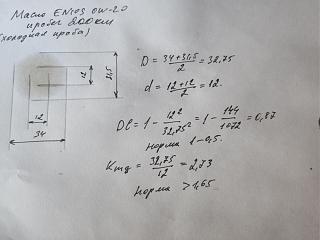 Масло ENEOS 0W-20
пробег 8200км
(холодная проба)
12
31,5
12
34
D = 34+31,5/2 = 32,75
d = 12+12/2 = 12.
Dl = 1 - 12²/32,75² = 1 - 144/1072 = 0,87
норма 1-0,5.
Кмд = 32,75/12 = 2,73
норма >1,65